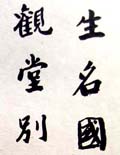 生名國
觀堂別